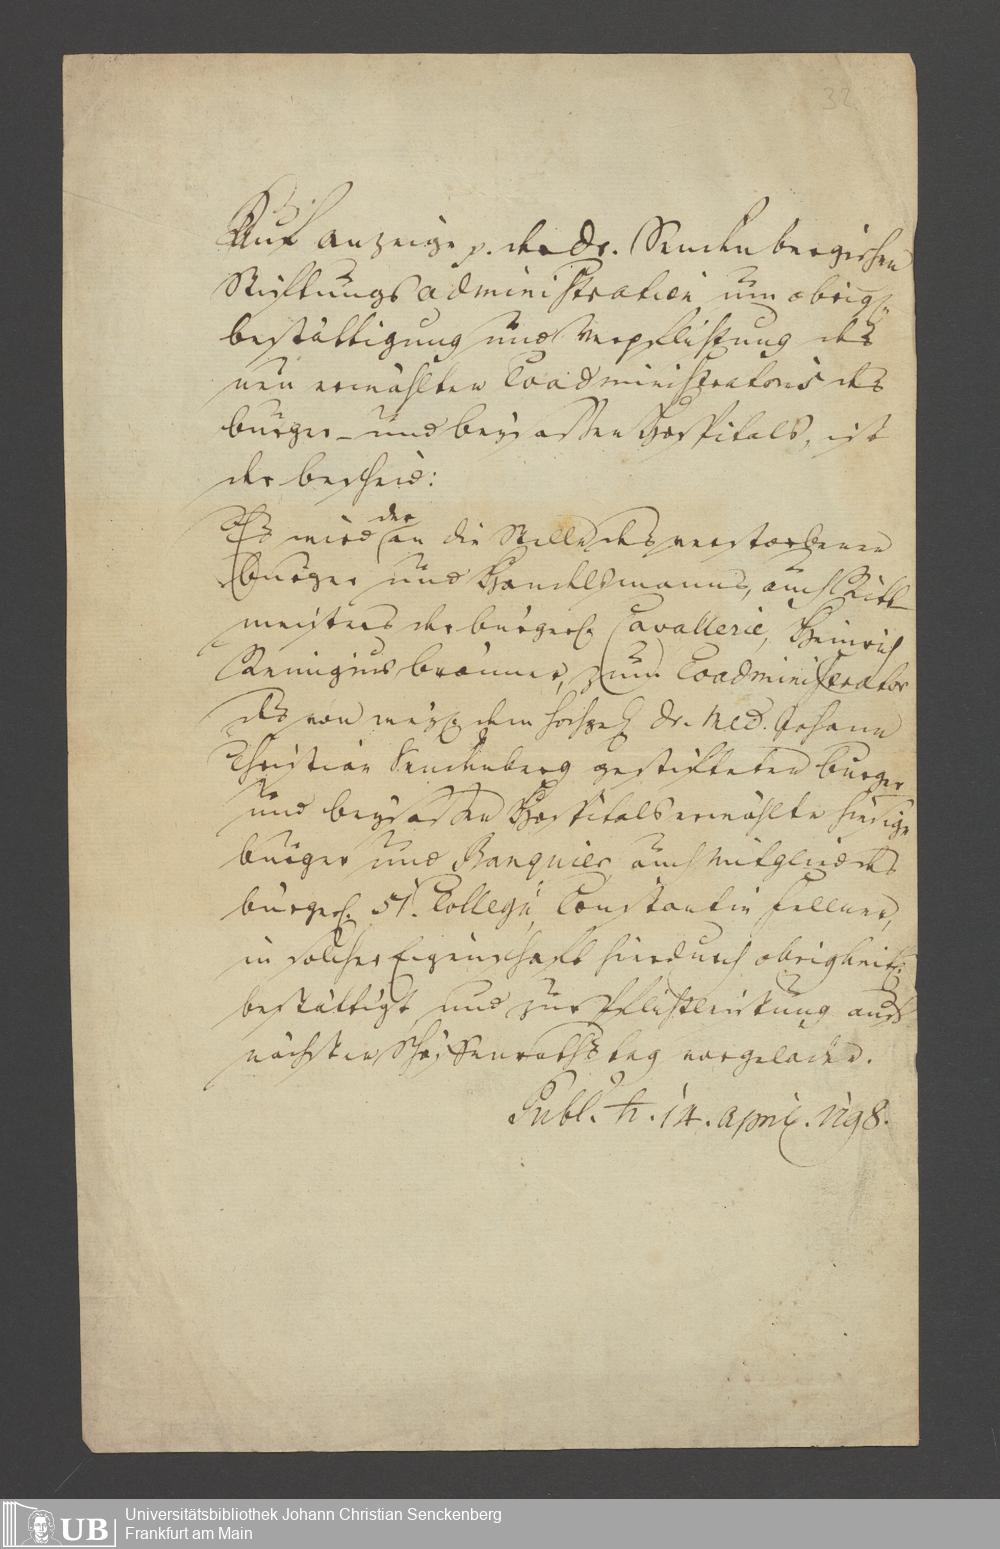 32
Auf anzeige p. der Dr. Senckenbergischen
Stifftungs Administration um obrigk.
bestättigung und Verpflichtung des
neu erwählten Coadministratoris des
bürger- und beysassen Hospitals, ist
der bescheid:
Es wird der an die Stelle des verstorbenen
burger und Handelsmanns, auch Ritt
meisters der bürgerl. Cavallerie, Heinrich
Remigius brönner, zum Coadministrator
des von weyl. dem hochgel. Dr. Med. Johann
Christian Senckenberg gestifteten burger
und beysassen Hospitals erwählte hiesige
burger und Banquier, auch Mitglied des
bürgerl. 51.r Collegii, Constantin Fellner,
in solcher Eigenschaft hierdurch obrigkeitl.
bestättigt, und zur Pflichtleistung aufs
nächsten Schöffenrathstag vorgeladen.
Publ. 14. April. 1798.
UB
Universitätsbibliothek Johann Christian Senckenberg
Frankfurt am Main